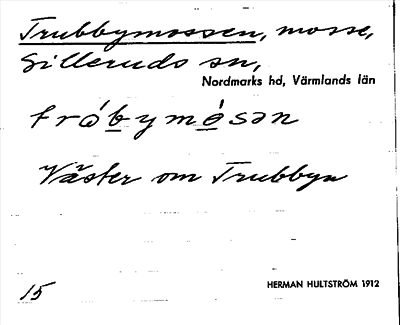 Trubbymossen, mosse,
Silleruds sn,
Nordmarks hd, Värmlands län
tró̱ḇymó̱sən
Väster om Trubbyn
15
HERMAN HULTSTRÖM 1912